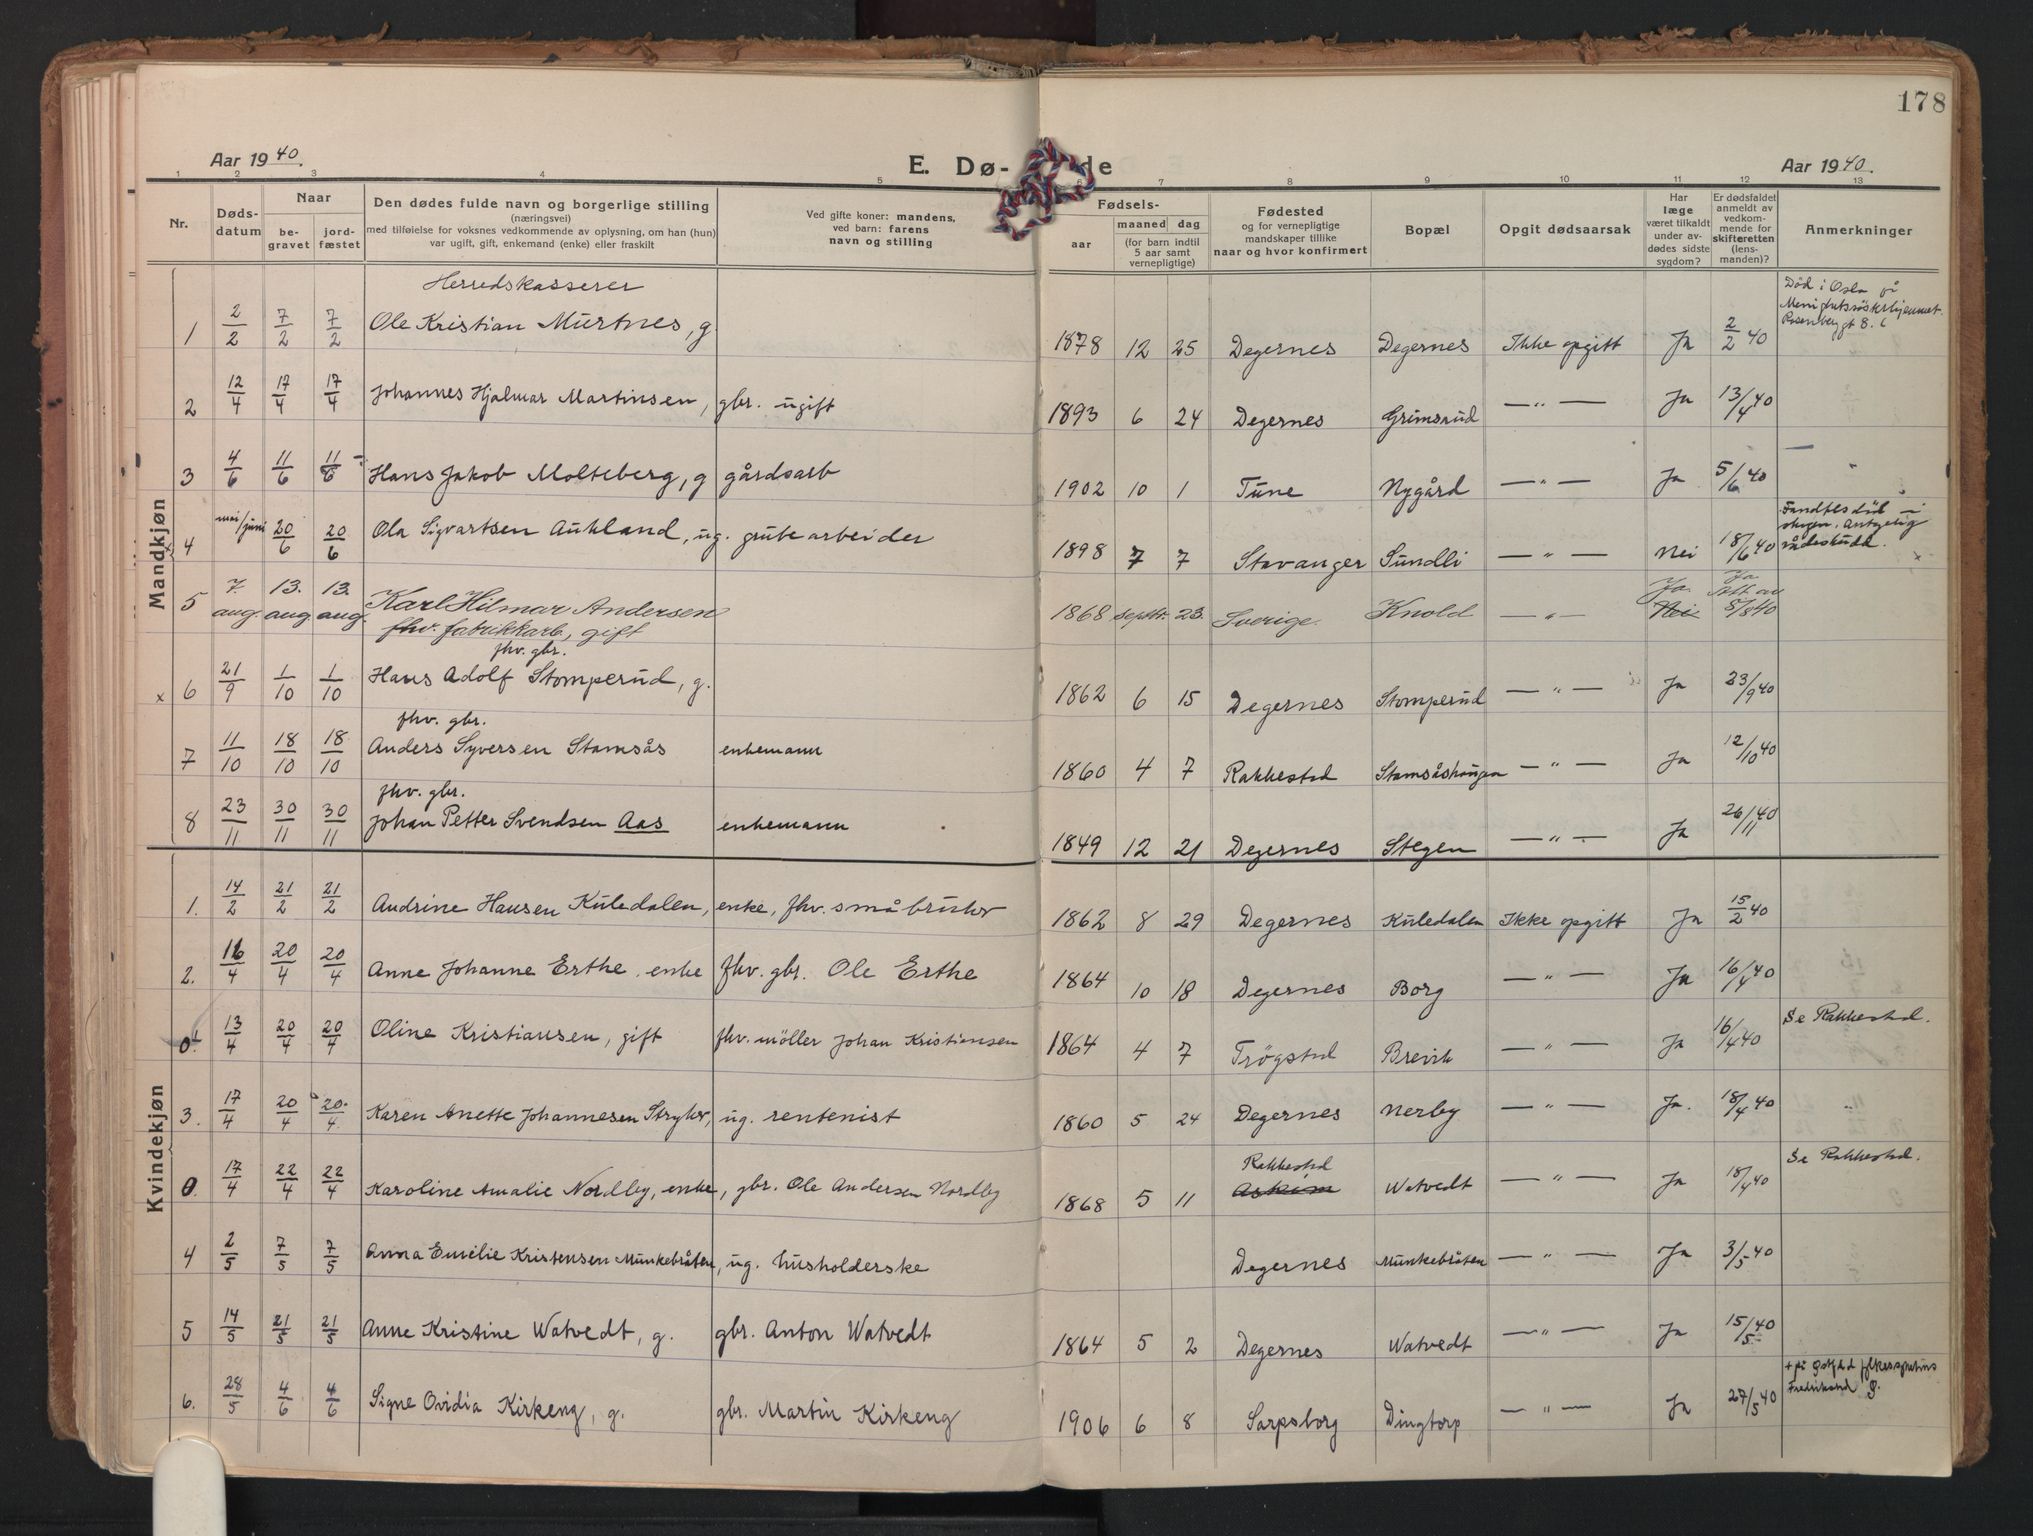 178
Aar 1940.
E. Dø-
de
Aar 1940.
1 2 3 4 5 7 8 9 10 11 12 13
Nr.
Døds-
datum
Naar
be-
gravet
jord-
fæstet
Den dødes fulde navn og borgerlige stilling
(næringsvei)
med tilføielse for voksnes vedkommende av oplysning, om han (hun)
var ugift, gift, enkemand (enke) eller fraskilt
Ved gifte koner: mandens,
ved barn: farens
navn og stilling
Fødsels-
aar
maaned dag
(for barn indtil
5 aar samt
vernepligtige)
Fødested
og for vernepligtige
mandskaper tillike
naar og hvor konfirmert
Bopæl
Opgit dødsaarsak
Har
læge
været tilkaldt
under av-
dødes sidste
sygdom?
Er dødsfaldet
anmeldt av
vedkom-
mende for
skifteretten
(lens-
manden)?
Anmerkninger
Mandkjøn
Herredskasserer
1 2/2 7/2 7/2 Ole Kristian Murtnes, g. 1878 12 25 Degernes Degernes Ikke opgitt Ja 2/2 40 Død i Oslo på
Rosenberggt 8.
2 12/4 17/4 17/4 Johannes Hjalmar Martinsen, gbr. ugift 1893 6 24 Degernes Grimsrud — " — Ja 13/4 40
3 4/6 11/6 11/6 Hans Jakob Molteberg, g gårdsarb 1902 10 1 Tune Nygård — " — Ja 5/6 40 "
x 4 mai/juni 20/6 20/6 Ola Sigvartsen Aukland, ug. grubearbeider 1898 7 7 Stavanger Sundli — " — Nei 18/6 40 Fandtes död i
skogen. x
5 7. aug. 13. aug. 13. aug. Karl Hilmar Andersen
fhv. fabrikkarb, gift 1868 septbr. 23. Sverige. Knold — " — Ja Nei Ja 8/8 40
fhv. gbr.
x 6 21/9 1/10 1/10 Hans Adolf Stomperud, g. 1862 6 15 Degernes Stomperud — " — Ja 23/9 40
fhv. gbr.
7 11/10 18/10 18/10 Anders Syversen Stamsås enkemann 1860 4 7 Rakkestad Stamsåshaugen — " — Ja 12/10 40
fhv. gbr.
8 23/11 30/11 30/11 Johan Petter Svendsen Aas enkemann 1849 12 21 Degernes Stegen — " — Ja 26/11 40
Kvindekjøn
1. 14/2 21/2 21/2 Andrine Hansen Kuledalen, enke, fhv. småbruker 1862 8 29 Degernes Kuledalen Ikke opgitt Ja 15/2 40
2. 16/4 20/4 20/4 Anne Johanne Erthe, enke fhv. gbr. Ole Erthe 1864 10 18 Degernes Borg — " — Ja 16/4 40
0 13/4 20/4 20/4 Oline Kristiansen, gift fhv. möller Johan Kristiansen 1864 4 7 Trøgstad Brevik — " — Ja 16/4 40 Se Rakkestad.
3. 17/4 20/4 20/4 Karen Anette Johannesen Stryker, ug. rentenist 1860 5 24 Degernes Nerby — " — Ja. 18/4 40 "
0. 17/4 22/4 22/4 Karoline Amalie Nordby, enke, gbr. Ole Andersen Nordby 1868 5 11 Rakkestad Askim Watvedt — " — Ja 18/4 40 Se Rakkestad.
4 2/5 7/5 7/5 Anna Emelie Kristensen Munkebråten, ug. husholderske Degernes Munkebråten — " — Ja 3/5 40
5 14/5 21/5 21/5 Anne Kristine Watvedt, g. gbr. Anton Watvedt 1864 5 2 Degernes Watvedt — " — Ja 15/5 40
6. 28/5 4/6 4/6 Signe Ovidia Kirkeng, g. gbr. Martin Kirkeng 1906 6 8 Sarpsborg Dingtorp — " — Ja 27/5 40 + på Østfold
Fredrikstad